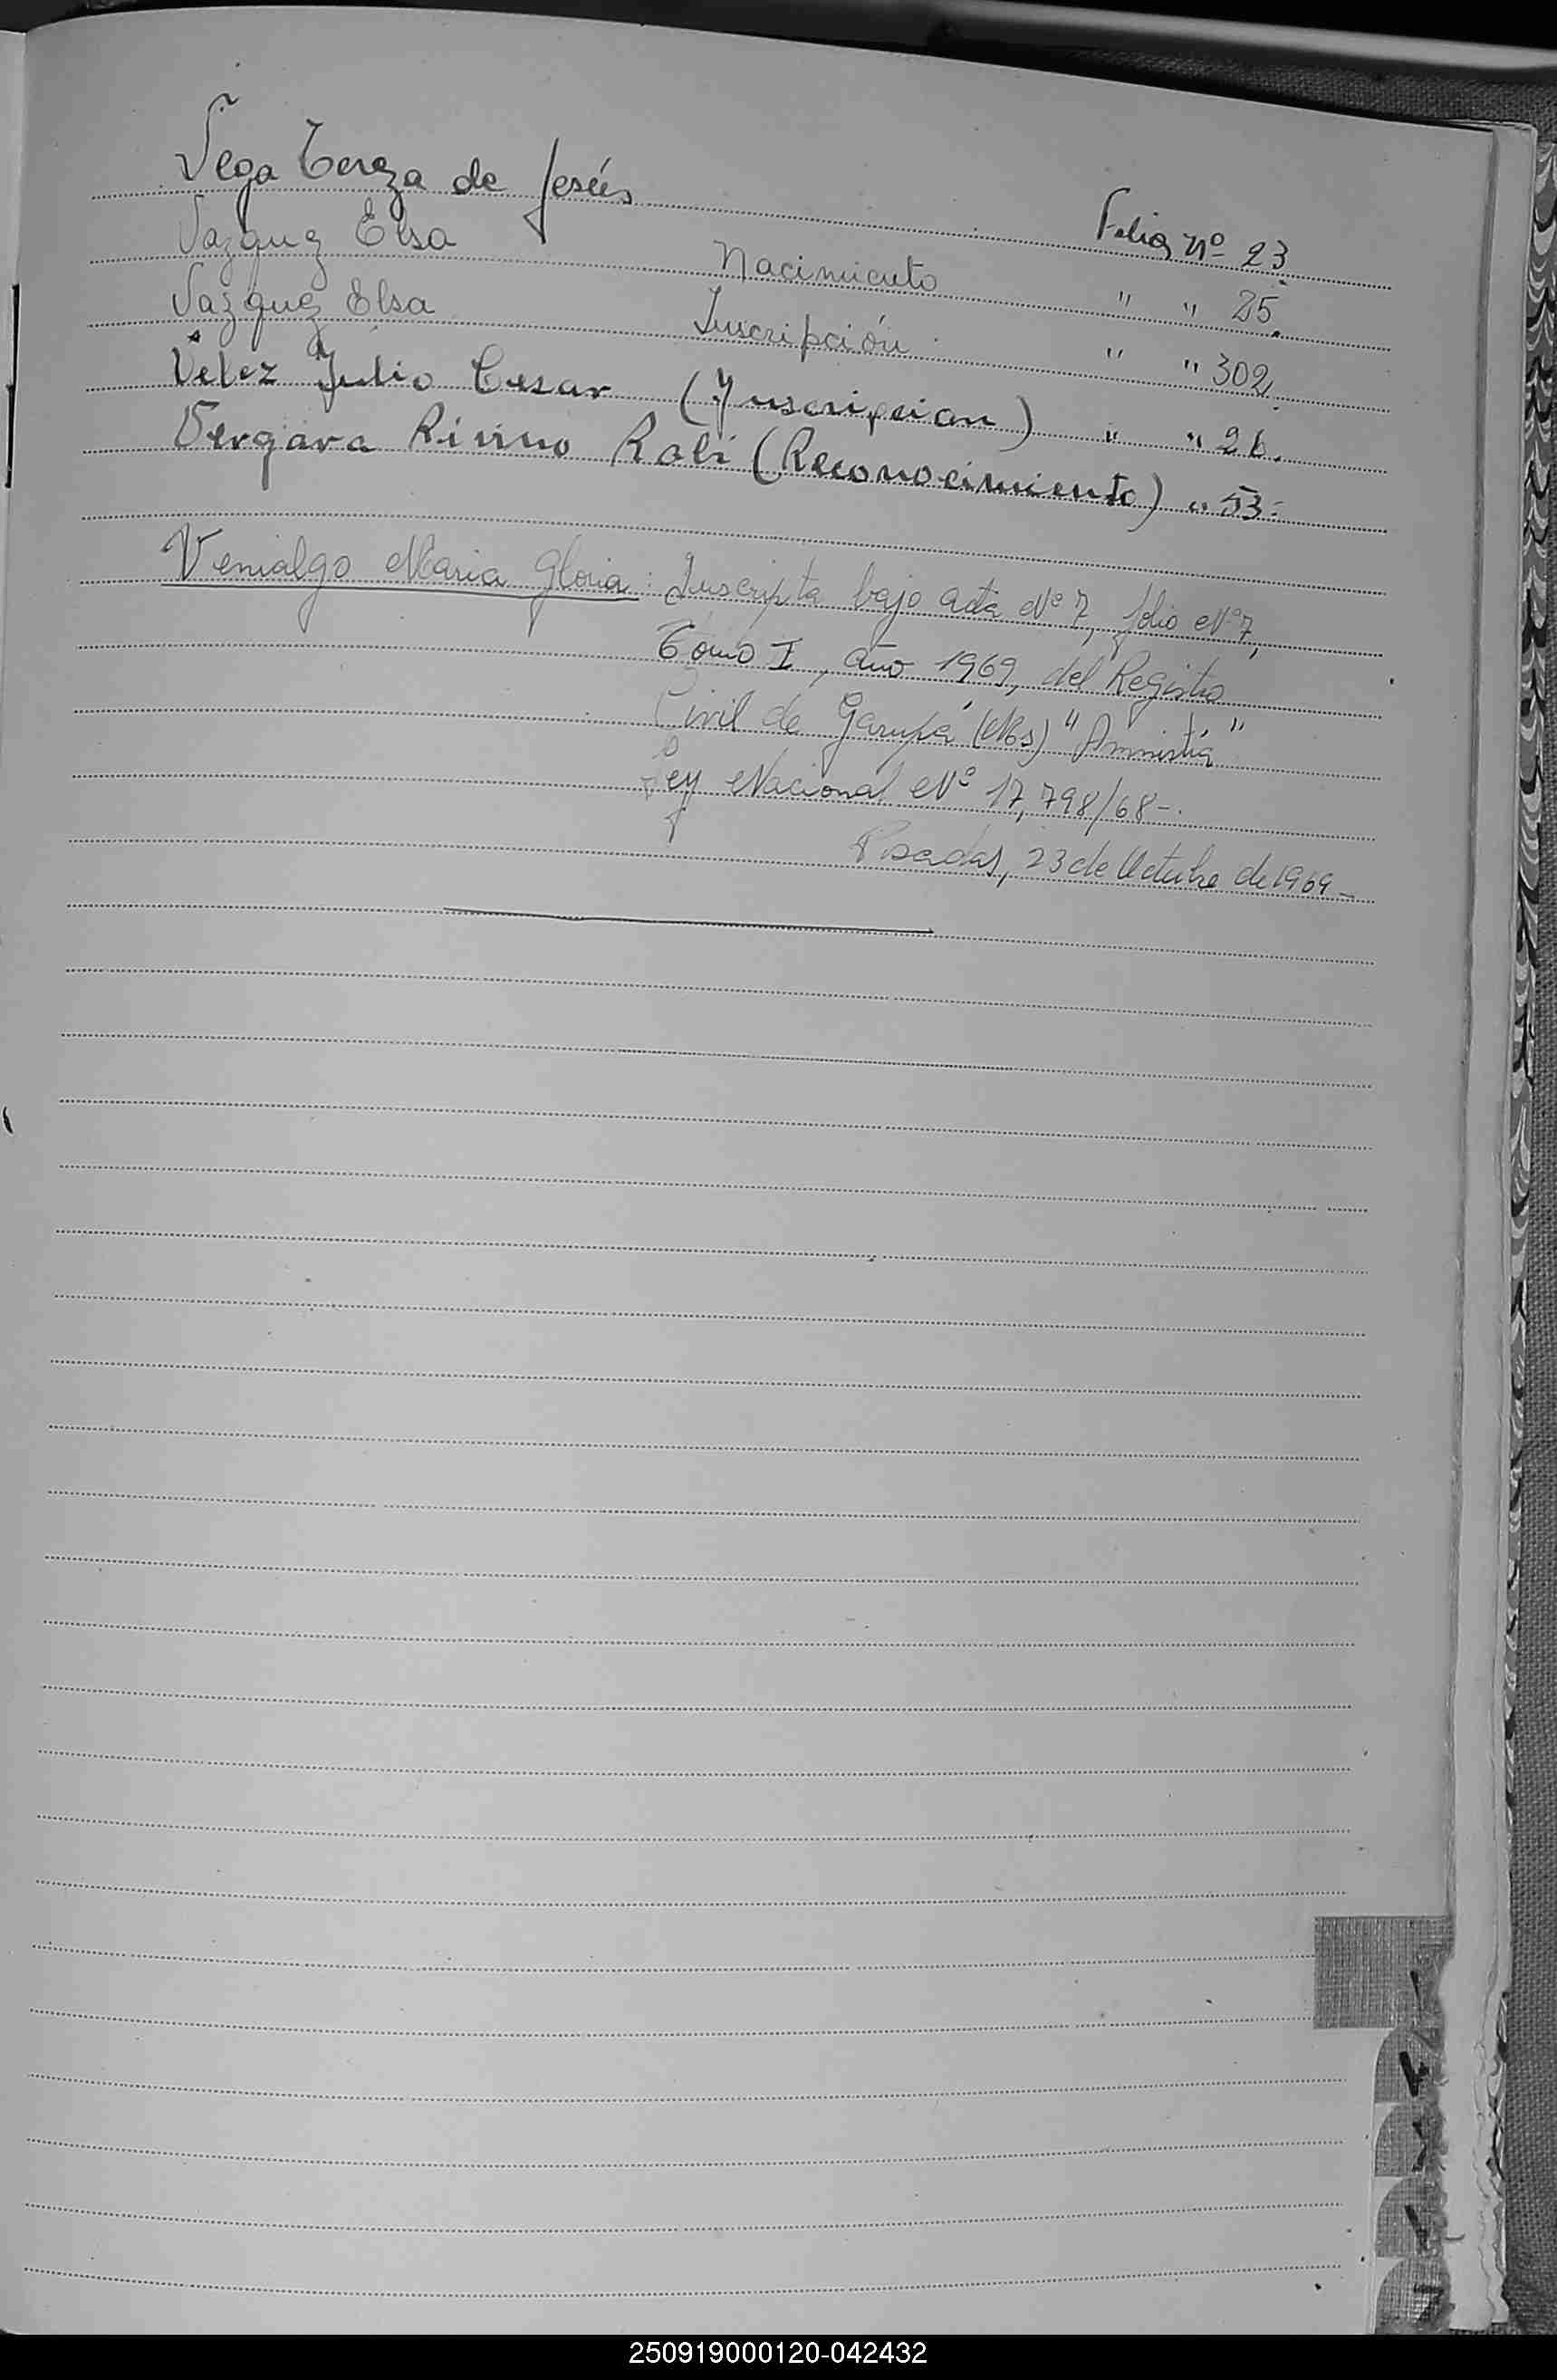 Vega Tereza de Jesús Folio Nº 23
Vazquez Elsa Nacimiento " " 25.
Vazquez Elsa Inscripción " " 302.
Velez Julio Cesar (Inscripcion) " " 26.
Vergara Rivino Rabi (Reconocimiento) " 53-
Venialgo Maria Gloria: Inscripta bajo acta Nº 7, folio Nº 7,
Tomo I, año 1969, del Registro
Civil de Garupá (Ms) "Amnistía"
Ley Nacional Nº 17,798/68-.
Posadas, 23 de Octubre de 1969-
250919000120-042432